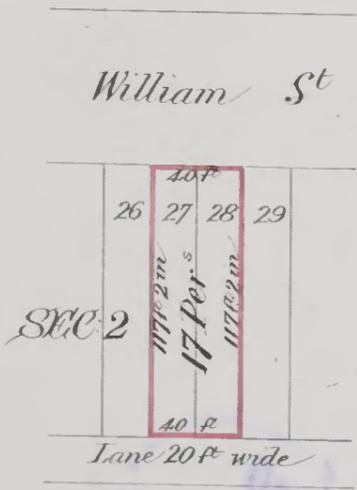 William St
40 ft
26 27 28 29
117 ft 2 in
17 Pers
117 ft 2 in
SEC: 2
40 ft
Lane 20 ft wide